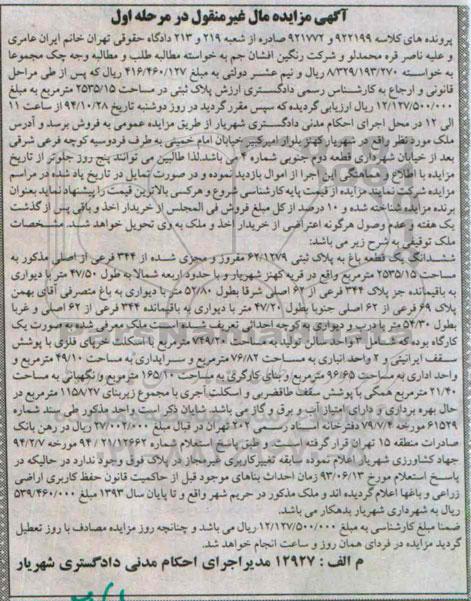 آگهی مزایده مال غیرمنقول در مرحله اول
پرونده های کلاسه ۹۲۲۱۹۹ و ۹۲۱۷۷۲ صادره از شعبه ۲۱۹ و ۲۱۳ دادگاه حقوقی تهران خانم ایران عامری
و علیه ناصر قره محمدلو و شرکت رنگین افشان جم به خواسته مطالبه طلب و مطالبه وجه چک مجموعا
به خواسته ۸/۳۲۹/۱۹۳/۲۷۰ ریال و نیم عشر دولتی به مبلغ ۴۱۶/۴۶۰/۱۲۷ ریال که پس از طی مراحل
قانونی و ارجاع به کارشناس رسمی دادگستری ارزش پلاک ثبتی در مساحت ۲۵۳۵/۱۵ مترمربع به مبلغ
۱۲/۱۲۷/۵۰۰/۰۰۰ ریال ارزیابی گردیده که سپس مقرر گردید در روز دوشنبه تاریخ ۹۴/۱۰/۲۸ از ساعت ۱۱
الی ۱۲ در محل اجرای احکام مدنی دادگستری شهریار از طریق مزایده عمومی به فروش برسد و آدرس
ملک مورد نظر واقع در شهریار کهنز بلوار امیرکبیر خیابان امام خمینی به طرف فردوسیه کوچه فرعی شرقی
بعد از خیابان شهرداری قطعه دوم جنوبی شماره ۴ می باشد.لذا طالبین می توانند پنج روز جلوتر از تاریخ
مزایده با اطلاع و هماهنگی این اجرا از اموال بازدید نموده و در صورت تمایل در تاریخ یاد شده در مراسم
مزایده شرکت نمایند. مزایده از قیمت پایه کارشناسی شروع و هرکس بالاترین قیمت را پیشنهاد نماید بعنوان
برنده مزایده شناخته شده و ۱۰ درصد از کل مبلغ فروش فی المجلس از خریدار اخذ و باقی پس از گذشت
یک هفته و عدم وصول هرگونه اعتراضی از خریدار اخذ و ملک به وی تحویل خواهد شد. مشخصات
ملک توقیفی به شرح زیر می باشد:
ششدانگ یک قطعه باغ به پلاک ثبتی ۶۲/۱۲۷۹ مفروز و مجزی شده از ۳۴۴ فرعی از اصلی مذکور به
مساحت ۲۵۳۵/۱۵ مترمربع واقع در قریه کهنز شهریار و با حدود اربعه شمالا به طول ۴۷/۵۰ متر با دیواری
به باقیمانده جز پلاک ۳۴۴ فرعی از ۶۲ اصلی شرقا بطول ۵۲/۸۰ متر با دیواری به باغ متصرفی آقای بهمن
پلاک ۶۹ فرعی از ۶۲ اصلی جنوبا بطول ۴۷/۲۰ متر با دیواری به باقیمانده ۳۴۴ فرعی از ۶۲ اصلی و غربا
بطول ۵۴/۳۰ متر با درب و دیواری به کوچه احداثی تعریف شده است ملک معرفی شده به صورت یک
کارگاه بوده که شامل ۳ واحد سالن تولید به مساحت ۷۴۹/۲۰ مترمربع با اسکلت خرپای فلزی با پوشش
سقف ایرانیتی و ۲ واحد انباری به مساحت ۷۶/۸۲ مترمربع و سرایداری به مساحت ۴۹/۱۰ مترمربع و
واحد اداری به مساحت ۹۶/۶۵ مترمربع و بنای کارگری به مساحت ۱۶۵/۱۰ مترمربع و نگهبانی به مساحت
۲۱/۴۰ مترمربع همگی با پوشش سقف طاقضربی و اسکلت آجری با مجموع زیربنای ۱۱۵۸/۲۷ مترمربع در
حال بهره برداری و دارای امتیاز آب و برق و گاز می باشد. شایان ذکر است واحد مذکور طی سند شماره
۶۱۵۲۹ مورخه ۷۹/۷/۴ دفترخانه اسناد رسمی ۲۰۲ تهران در قبال مبلغ ۲۷/۰۰۲/۰۰۰ ریال در رهن بانک
صادرات منطقه ۱۵ تهران قرار گرفته است و طبق پاسخ استعلام شماره ۲۱/۱۲۶۶۲ / ۹۴ مورخ ۹۴/۲/۷
جهاد کشاورزی شهریار اعلام نموده سابقه تغییرکاربری غیرمجاز در پلاک فوق وجود ندارد در حالیکه در
پاسخ استعلام مورخ ۹۳/۰۶/۱۳ زمان احداث بناهای موجود قبل از حاکمیت قانون حفظ کاربری اراضی
زراعی و باغها اعلام گردیده اند و ملک مذکور در حریم شهر واقع و تا پایان سال ۱۳۹۳ مبلغ ۵۳۹/۴۶۰/۰۰۰
ریال به شهرداری شهریار بدهکار می باشد.
ضمنا مبلغ کارشناسی به مبلغ ۱۲/۱۲۷/۵۰۰/۰۰۰ ریال می باشد و چنانچه روز مزایده مصادف با روز تعطیل
گردید مزایده در فردای همان روز و ساعت انجام خواهد شد.
م الف : ۱۲۹۲۷ مدیر اجرای احکام مدنی دادگستری شهریار